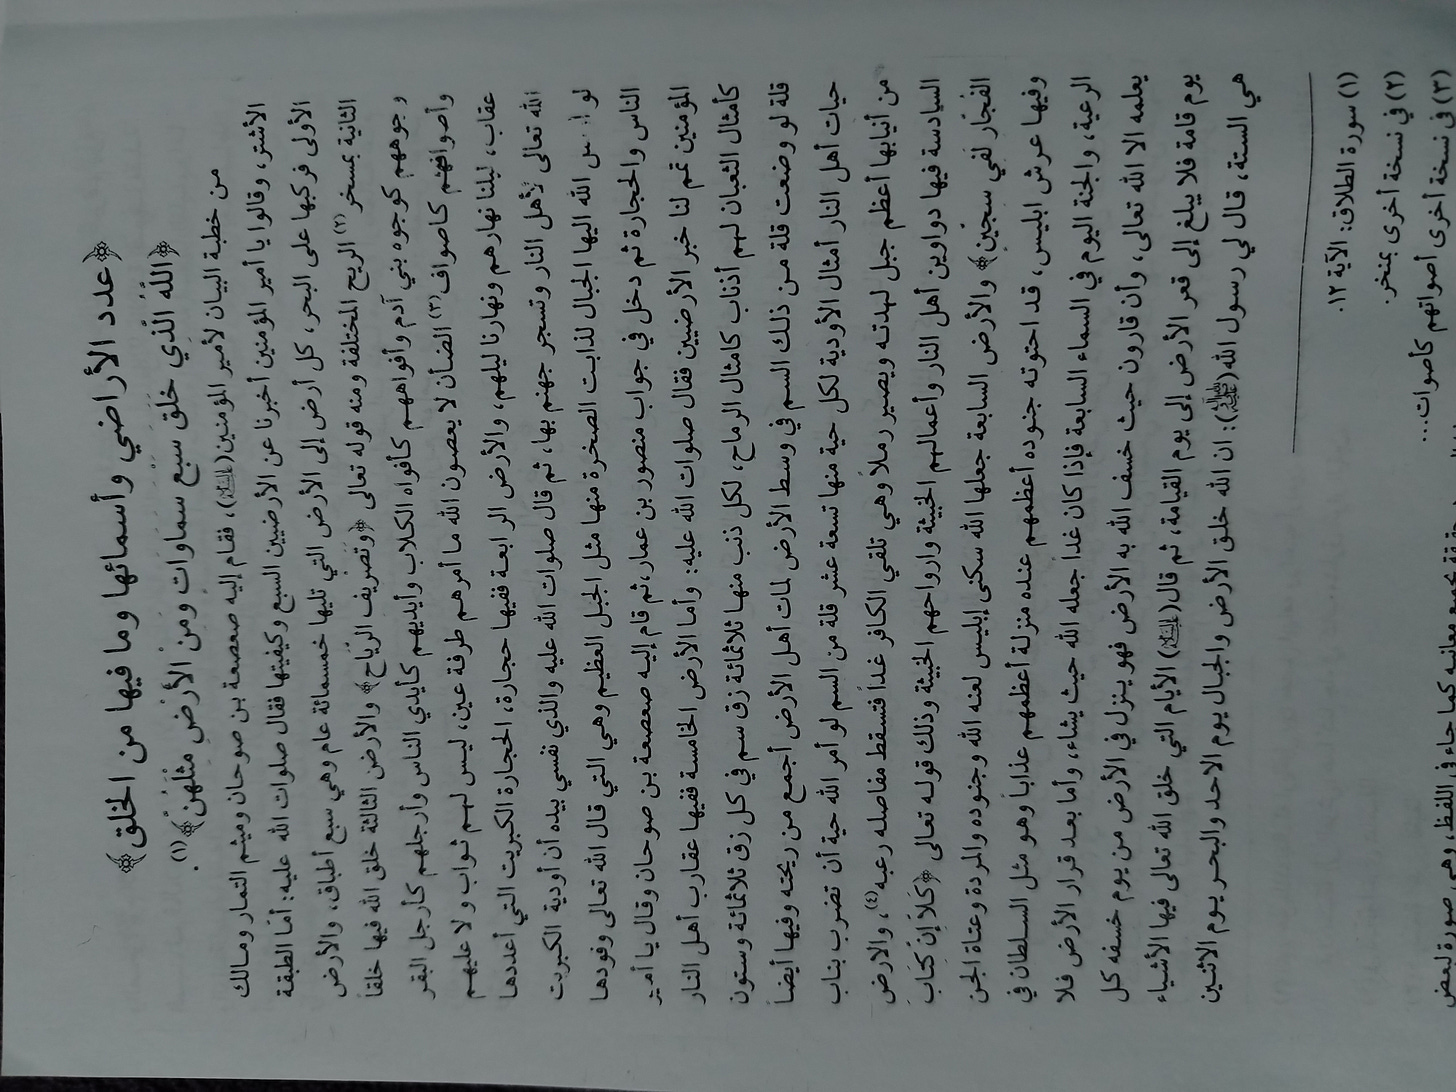 ﴿عدد الأراضي وأسمائها وما فيها من الخلق﴾
﴿اللَّهُ الَّذِي خَلَقَ سَبْعَ سماوَات وَمنَ الأَرْضِ مثْلَهُنَّ﴾(١).
من خطبة البيان لأمير المؤمنين(عليه السلام)، فقام إليه صعصعة بن صوحان وميثم التمار ومالك
الأشتر، وقالوا يا أمير المؤمنين أخبرنا عن الأرضيين السبع وكيفيتها فقال صلوات الله عليه: أما الطبقة
الأولى فركبها على البحر، كل أرض إلى الأرض التي تليها خمسمائة عام وهي سبع أطباق، والأرض
الثانية بمسخر(٢) الريح المختلفة ومنه قوله تعالى ﴿وَتَصْريف الرّيَاح﴾ والأرض الثالثة خلق الله فيها خلقاً
وجوههم كوجوه بني آدم وأفواههم كأفواه الكلاب وأيديهم كأيدي الناس وأرجلهم كأرجل البقر
وأصوافهم كاصواف(٣) الضأن لا يعصون الله ما أمرهم طرفة عين، ليس لهم ثواب ولا عليهم
عقاب، ليلنا نهارهم ونهارنا ليلهم، والأرض الرابعة ففيها حجارة، الحجارة الكبريت التي أعددها
الله تعالى لأهل النار وتسجر جهنم بها، ثم قال صلوات الله عليه والذي نفسي بيده أن أودية الكبريت
لو الله اليها الجبال لذابت الصخرة منها مثل الجبل العظيم وهي التي قال الله تعالى وقودها
الناس والحجارة ثم دخل في جواب منصور بن عمار، ثم قام إليه صعصعة بن صوحان وقال يا أمير
المؤمنين تمم لنا خبر الأرضيين فقال صلوات الله عليه: وأما الأرض الخامسة ففيها عقارب أهل النار
كأمثال الثعبان لهم أذناب كامثال الرماح، لكل ذنب منها ثلاثمائة زق سم في كل زق ثلاثمائة وستون
قلة لو وضعت قلة من ذلك السم في وسط الأرض لمات أهل الأرض أجمع من ريحته وفيها أيضاً
حيات أهل النار أمثال الأودية لكل حية منها تسعة عشر قلة من السم لو أمر الله حية أن تضرب بناب
من أنيابها أعظم جبل لهدته ويصير رملاً وهي تلقي الكافر غداً فتسقط مفاصله رعبه(٤)، والارض
السادسة فيها دواوين أهل النار وأعمالهم الخبيثة وارواحهم الخبيثة وذلك قوله تعالى ﴿كَلاَ إنّ كتَابَ
الفُجار لَفي سجّينٍ﴾ والأرض السابعة جعلها الله سكنى إبليس لعنه الله وجنوده والمردة وعتاة الجن
وفيها عرش ابليس، قد احتوته جنوده أعظمهم عنده منزلة أعظمهم عذاباً وهو مثل السلطان في
الرعية، والجنة اليوم في السماء السابعة فإذا كان غداً جعله الله حيث يشاء، وأما بعد قرار الأرض فلا
يعلمه الا الله تعالى، وأن قارون حيث خسف الله به الأرض فهو ينزل في الأرض من يوم خسفه كل
يوم قامة فلا يبلغ إلى قعر الأرض إلى يوم القيامة، ثم قال(عليه السلام) الأيام التي خلق الله تعالى فيها الأشياء
هي الستة، قال لي رسول الله(ﷺ): ان الله خلق الأرض والجبال يوم الاحد والبحر يوم الاثنين
(١) سورة الطلاق: الآية ١٢.
(٢) في نسخة أخرى بمنخر.
(٣) في نسخة أخرى أصواتهم كأصوات...
معانيه كما جاء في اللفظ، وهي صورة لبعض